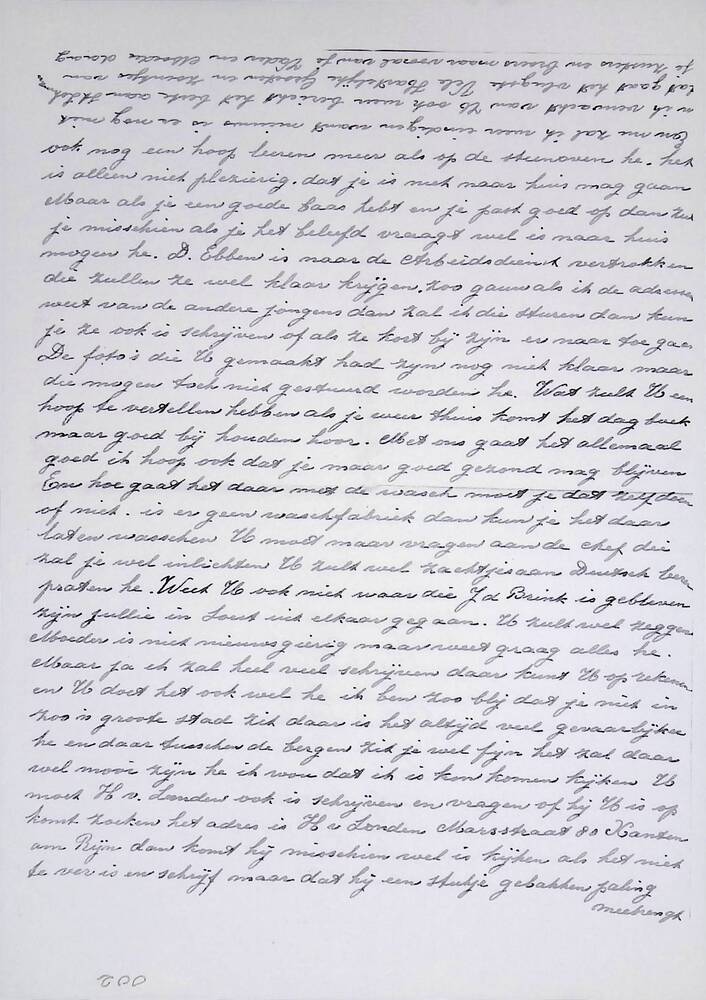 ook nog een hoop leeren meer als op de steenoven he. het
is alleen niet plezierig. dat je is niet naar huis mag gaan
Maar als je een goede baas hebt en je past goed op dan zul
je misschien als je het beleefd vraagt wel is naar huis
mogen he. D. Ebben is naar de Arbeidsdienst vertrokken
die zullen ze wel klaar krijgen. zoo gauw als ik de adressen
weet van de andere jongens dan zal ik die sturen dan kun
je ze ook is schrijven of als ze kort bij zijn er naar toe gaan
De foto's die U gemaakt had zyn nog niet klaar maar
die mogen toch niet gestuurd worden he. Wat zult U een
hoop te vertellen hebben als je weer thuis komt het dag boek
maar goed bij houden hoor. Met ons gaat het allemaal
goed ik hoop ook dat je maar goed gezond mag blijven
En hoe gaat het daar met de wasch moet je dat zelf doen
of niet. is er geen waschfabriek dan kun je het daar
laten wasschen U moet maar vragen aan de chef die
zal je wel inlichten U zult wel zachtjesaan Deutsch leren
praten he. Weet U ook niet waar die J d Brink is gebleven
zijn jullie in Soest uit elkaar gegaan. U zult wel zeggen
Moeder is niet nieuwsgierig maar weet graag alles he.
Maar ja ik zal heel veel schrijven daar kunt U op rekenen
en U doet het ook wel he ik ben zoo blij dat je niet in
zoo'n groote stad zit daar is het altijd veel gevaarlijker
he en daar tusschen de bergen zit je wel fijn het zal daar
wel mooi zijn he ik wou dat ik is kon komen kijken U
moet H v. Londen ook is schrijven en vragen of hij U is op
komt zoeken het adres is H v Londen Marsstraat 80 Xanten
am Rijn dan komt hij misschien wel is kijken als het niet
te ver is en schrijf maar dat hij een stukje gebakken paling
meebrengt
En nu zal ik weer eindigen want nieuws is er nog niet
en ik verwacht van U ook weer bericht het beste aan
dat gaat het vlugste Vele Hartelijke Groeten en Zoentjes van
je zusters en broers maar vooral van je Vader en Moeder daag
200